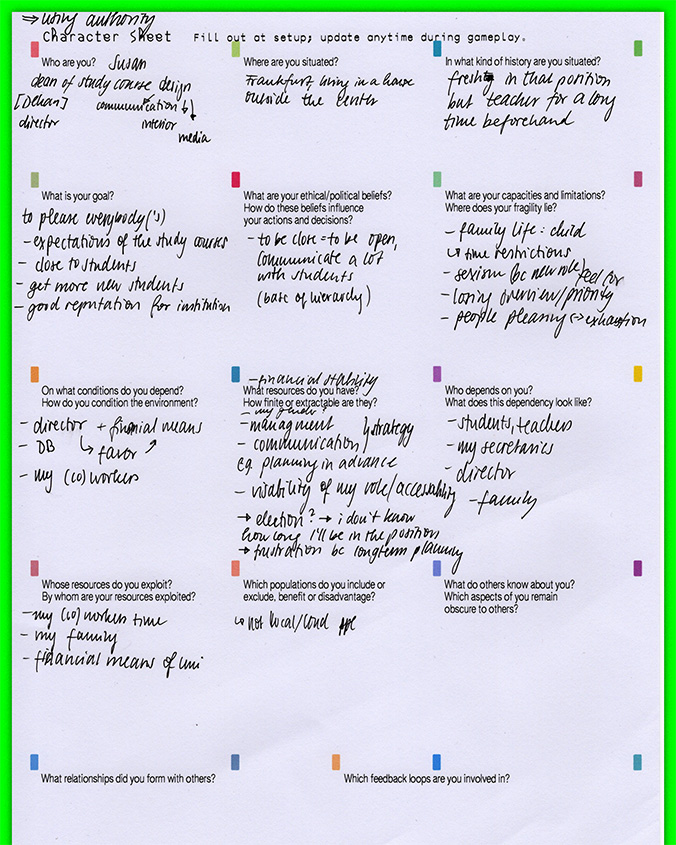 ⇒ using authority
Character Sheet Fill out at setup; update anytime during gameplay.
Who are you? Susan
dean of study course design
[Dekan] communication
director interior
media
Where are you situated?
Frankfurt living in a house
outside the center
In what kind of history are you situated?
fresh in that position
but teacher for a long
time beforehand
What is your goal?
to please everybody('s)
- expectations of the study courses
- close to students
- get more new students
- good reputation for institution
What are your ethical/political beliefs?
How do these beliefs influence
your actions and decisions?
- to be close = to be open,
communicate a lot
with students
(base of hierarchy)
What are your capacities and limitations?
Where does your fragility lie?
- family life: child
↳ time restrictions
- sexism (bc new role) feel for
- losing overview/priority
- people pleasing → exhaustion
On what conditions do you depend?
How do you condition the environment?
- director + finanial means
- DB ↳ favor
- my (co)workers
- financial stability
What resources do you have?
How finite or extractable are they?
- my
- managment
- communication } strategy
eg planning in advance
- visability of my role/accessability
→ election? → i don't know
how long I'll be in the position
→ frustration bc longterm planning
Who depends on you?
What does this dependency look like?
- students, teachers
- my secretaries
- director
- family
Whose resources do you exploit?
By whom are your resources exploited?
- my (co)workers time
- my family
- financial means of uni
Which populations do you include or
exclude, benefit or disadvantage?
↳ not local/loud ppl
What do others know about you?
Which aspects of you remain
obscure to others?
What relationships did you form with others?
Which feedback loops are you involved in?